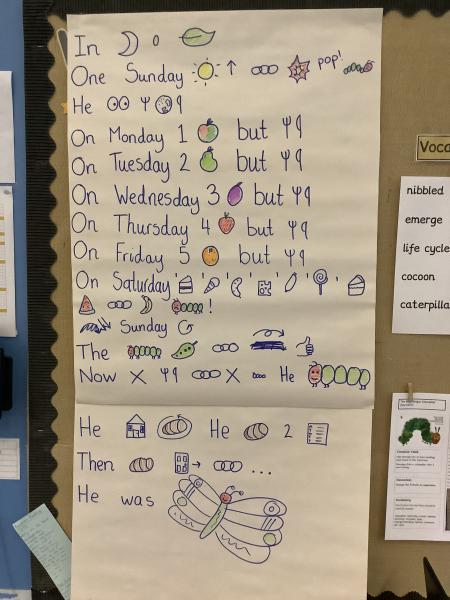 In
One Sunday pop!
He
On Monday 1 but
On Tuesday 2 but
On Wednesday 3 but
On Thursday 4 but
On Friday 5 but
On Saturday
!
Sunday
The
Now He
He He 2
Then ...
He was
Voca
nibbled
emerge
life cycle
cocoon
caterpilla